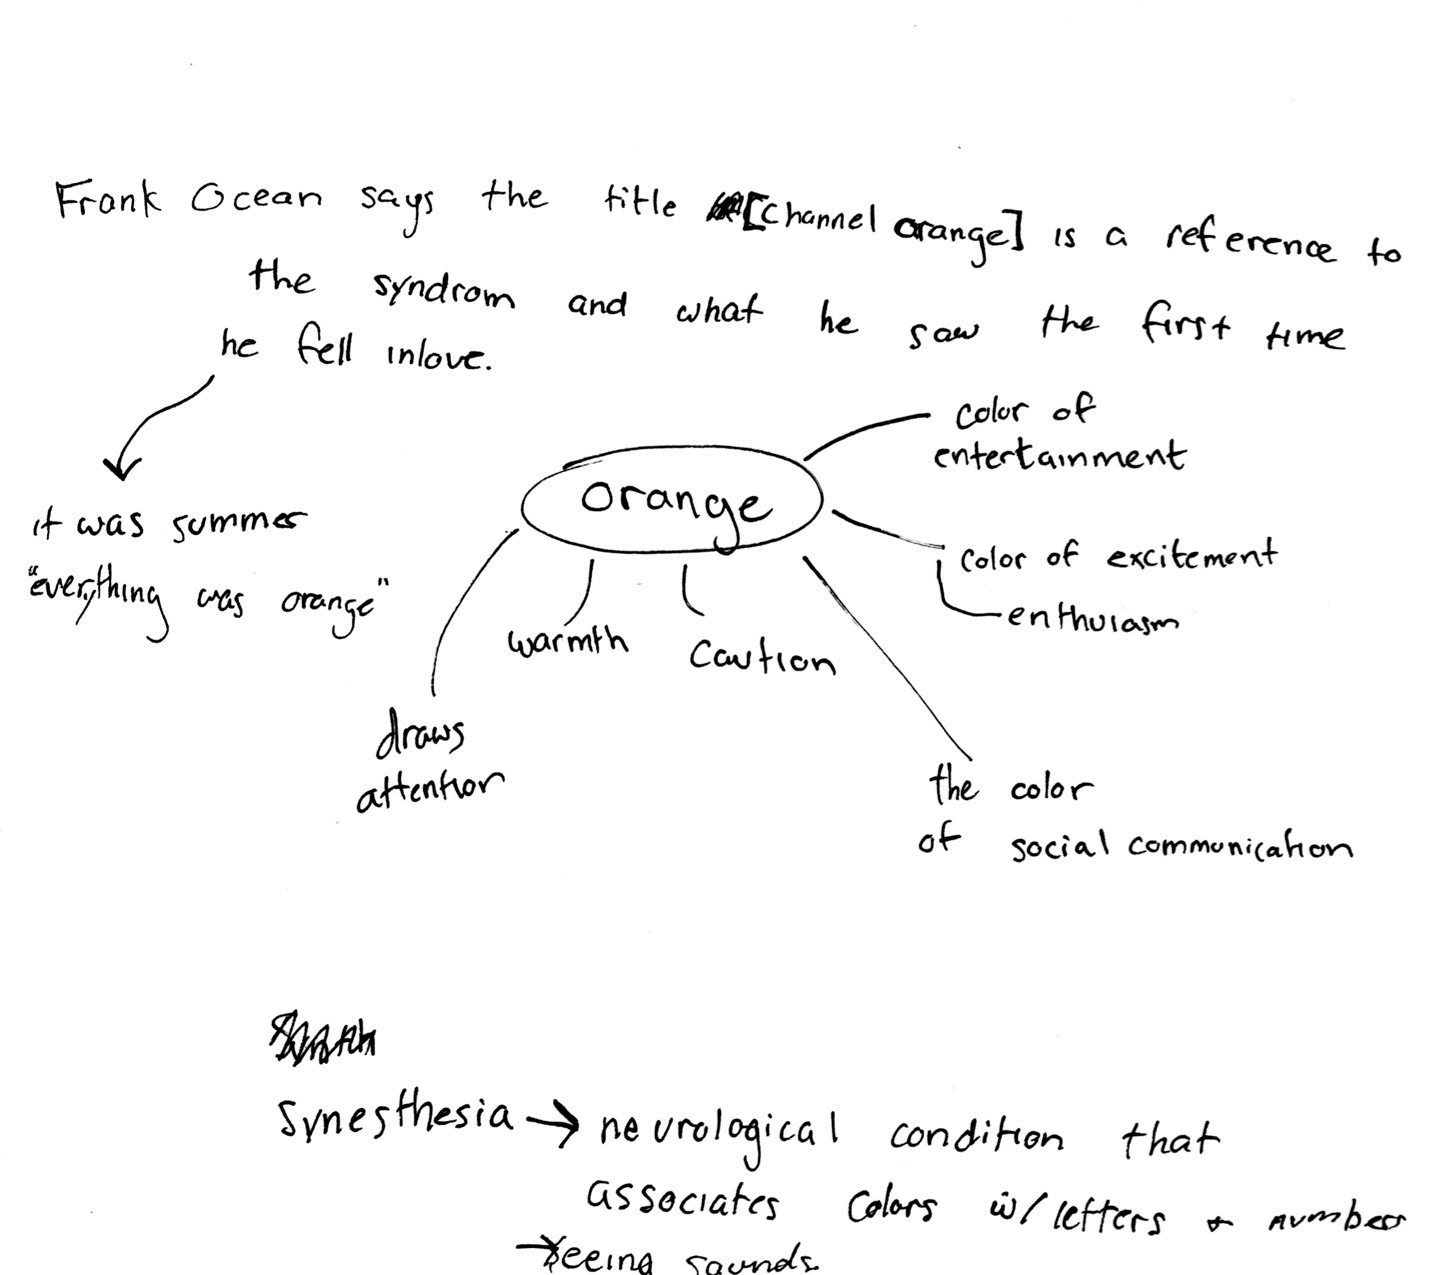 Frank Ocean says the title [channel orange] is a reference to
the syndrom and what he saw the first time
he fell inlove.
it was summer
"everything was orange"
orange
color of
entertainment
color of excitement
enthuiasm
warmth
caution
draws
attention
the color
of social communication
Synesthesia → neurological condition that
associates colors w/ letters + numbers
→ seeing sounds